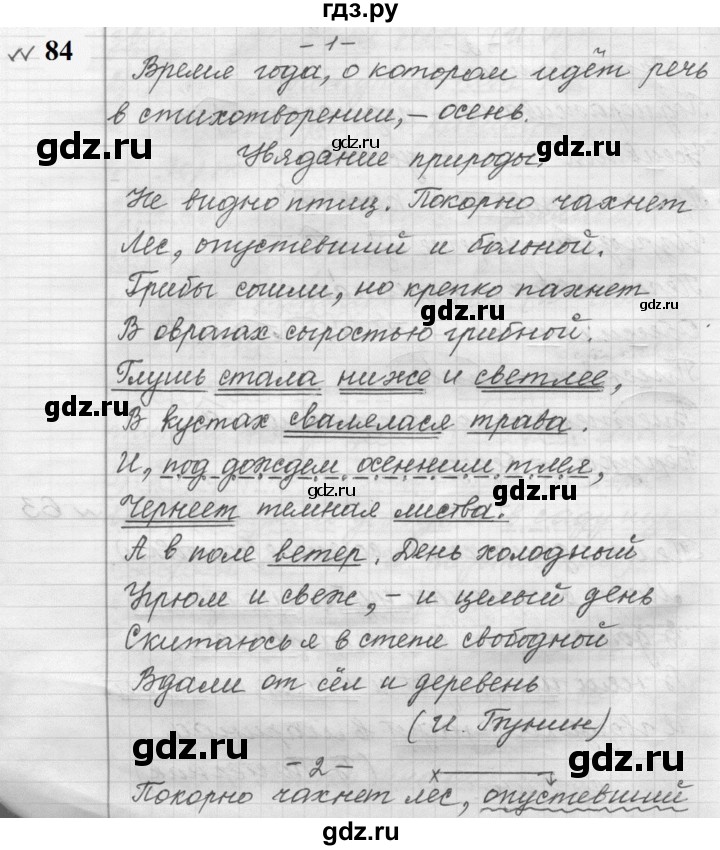 гдз.ру
№ 84
- 1 -
Время года, о котором идёт речь
в стихотворении, – осень.
Увядание природы.
Не видно птиц. Покорно чахнет
Лес, опустевший и больной.
Грибы сошли, но крепко пахнет
В оврагах сыростью грибной.
Глушь стала ниже и светлее,
В кустах свалялася трава.
И, под дождем осенним тлея,
Чернеет темная листва.
А в поле ветер. День холодный
Угрюм и свеж, – и целый день
Скитаюсь я в степи свободной
Вдали от сёл и деревень
(И. Бунин)
- 2 -
Покорно чахнет лес, опустевший
gdz.ru